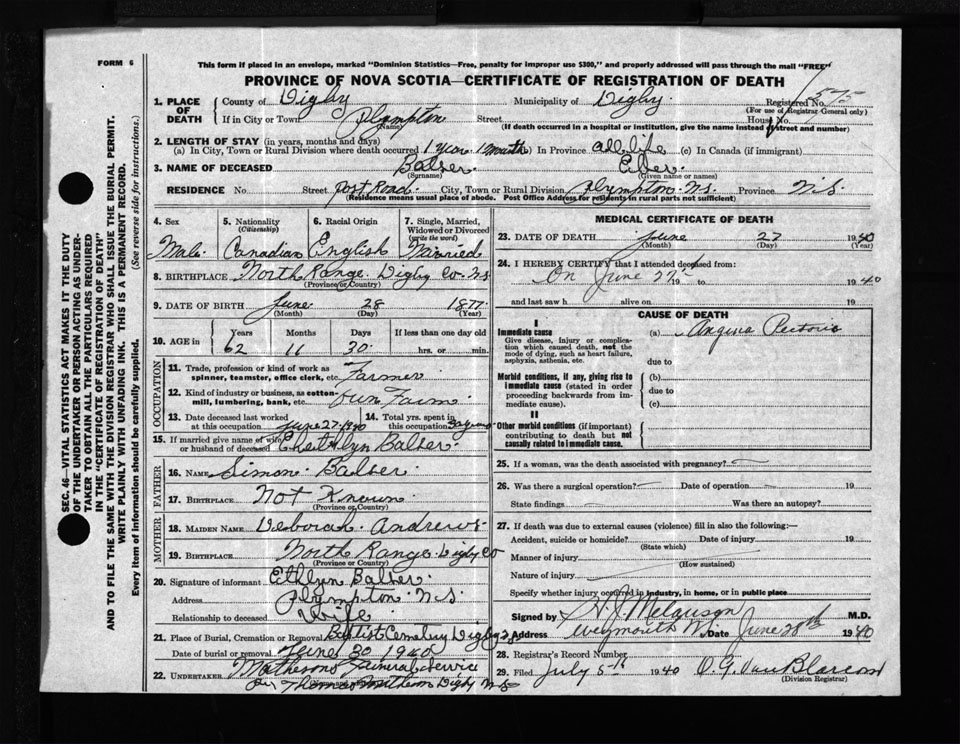 FORM 6
This form if placed in an envelope, marked "Dominion Statistics—Free, penalty for improper use $300," and properly addressed will pass through the mail "FREE"
PROVINCE OF NOVA SCOTIA—CERTIFICATE OF REGISTRATION OF DEATH
SEC. 46—VITAL STATISTICS ACT MAKES IT THE DUTY
OF THE UNDERTAKER OR PERSON ACTING AS UNDER-
TAKER TO OBTAIN ALL THE PARTICULARS REQUIRED
IN THE "CERTIFICATE OF REGISTRATION OF DEATH"
AND TO FILE THE SAME WITH THE DIVISION REGISTRAR WHO SHALL ISSUE THE BURIAL PERMIT.
WRITE PLAINLY WITH UNFADING INK. THIS IS A PERMANENT RECORD.
Every item of information should be carefully supplied. (See reverse side for instructions.)
1. PLACE OF DEATH County of Digby Municipality of Digby Registered No. 575
(For use of Registrar General only)
If in City or Town Plympton Street House No.
(Name) (If death occurred in a hospital or institution, give the name instead of street and number)
2. LENGTH OF STAY (in years, months and days)
(a) In City, Town or Rural Division where death occurred 1 year 1 month In Province all life (c) In Canada (if immigrant)
3. NAME OF DECEASED Balser Eber
(Surname) (Given name or names)
RESIDENCE No. Street Post Road City, Town or Rural Division Plympton N.S. Province N.S.
(Residence means usual place of abode. Post Office Address for residents in rural parts not sufficient)
4. Sex 5. Nationality (Citizenship) 6. Racial Origin 7. Single, Married, Widowed or Divorced (write the word)
Male Canadian English Married
8. BIRTHPLACE North Range Digby Co. N.S.
(Province or Country)
9. DATE OF BIRTH June 28 1877
(Month) (Day) (Year)
10. AGE in Years Months Days If less than one day old
62 11 30 hrs. or min.
OCCUPATION
11. Trade, profession or kind of work as spinner, teamster, office clerk, etc. Farmer
12. Kind of industry or business, as cotton-mill, lumbering, bank, etc. Own Farm
13. Date deceased last worked at this occupation June 27 1940
14. Total yrs. spent in this occupation
15. If married give name of wife or husband of deceased Balser
FATHER
16. NAME Simone Balser
17. BIRTHPLACE Not Known
(Province or Country)
MOTHER
18. MAIDEN NAME Deborah Andrews
19. BIRTHPLACE North Range Digby Co
(Province or Country)
20. Signature of informant Ethlyn Balser
Address Plympton N.S.
Relationship to deceased Wife
21. Place of Burial, Cremation or Removal Baptist Cemetery Digby
Date of burial or removal June 30 1940
22. UNDERTAKER Mathesons Funeral Service
Per Thomas Matheson Digby N.S.
MEDICAL CERTIFICATE OF DEATH
23. DATE OF DEATH June 27 1940
(Month) (Day) (Year)
24. I HEREBY CERTIFY that I attended deceased from:
On June 27th 19 to 1940
and last saw h alive on 19
CAUSE OF DEATH
I
Immediate cause (a) Angina Pectoris
Give disease, injury or complication which caused death, not the mode of dying, such as heart failure, asphyxia, asthenia, etc.
due to
Morbid conditions, if any, giving rise to immediate cause (stated in order proceeding backwards from immediate cause).
(b)
due to
(c)
II
Other morbid conditions (if important) contributing to death but not causally related to immediate cause.
25. If a woman, was the death associated with pregnancy?
26. Was there a surgical operation? Date of operation 19
State findings Was there an autopsy?
27. If death was due to external causes (violence) fill in also the following:—
Accident, suicide or homicide? Date of injury 19
(State which)
Manner of injury
(How sustained)
Nature of injury
Specify whether injury occurred in industry, in home, or in public place
Signed by M.D.
Address Weymouth N.S. Date June 28th 1940
28. Registrar's Record Number
29. Filed July 5th 1940 O. G. Van Blarcom
(Division Registrar)